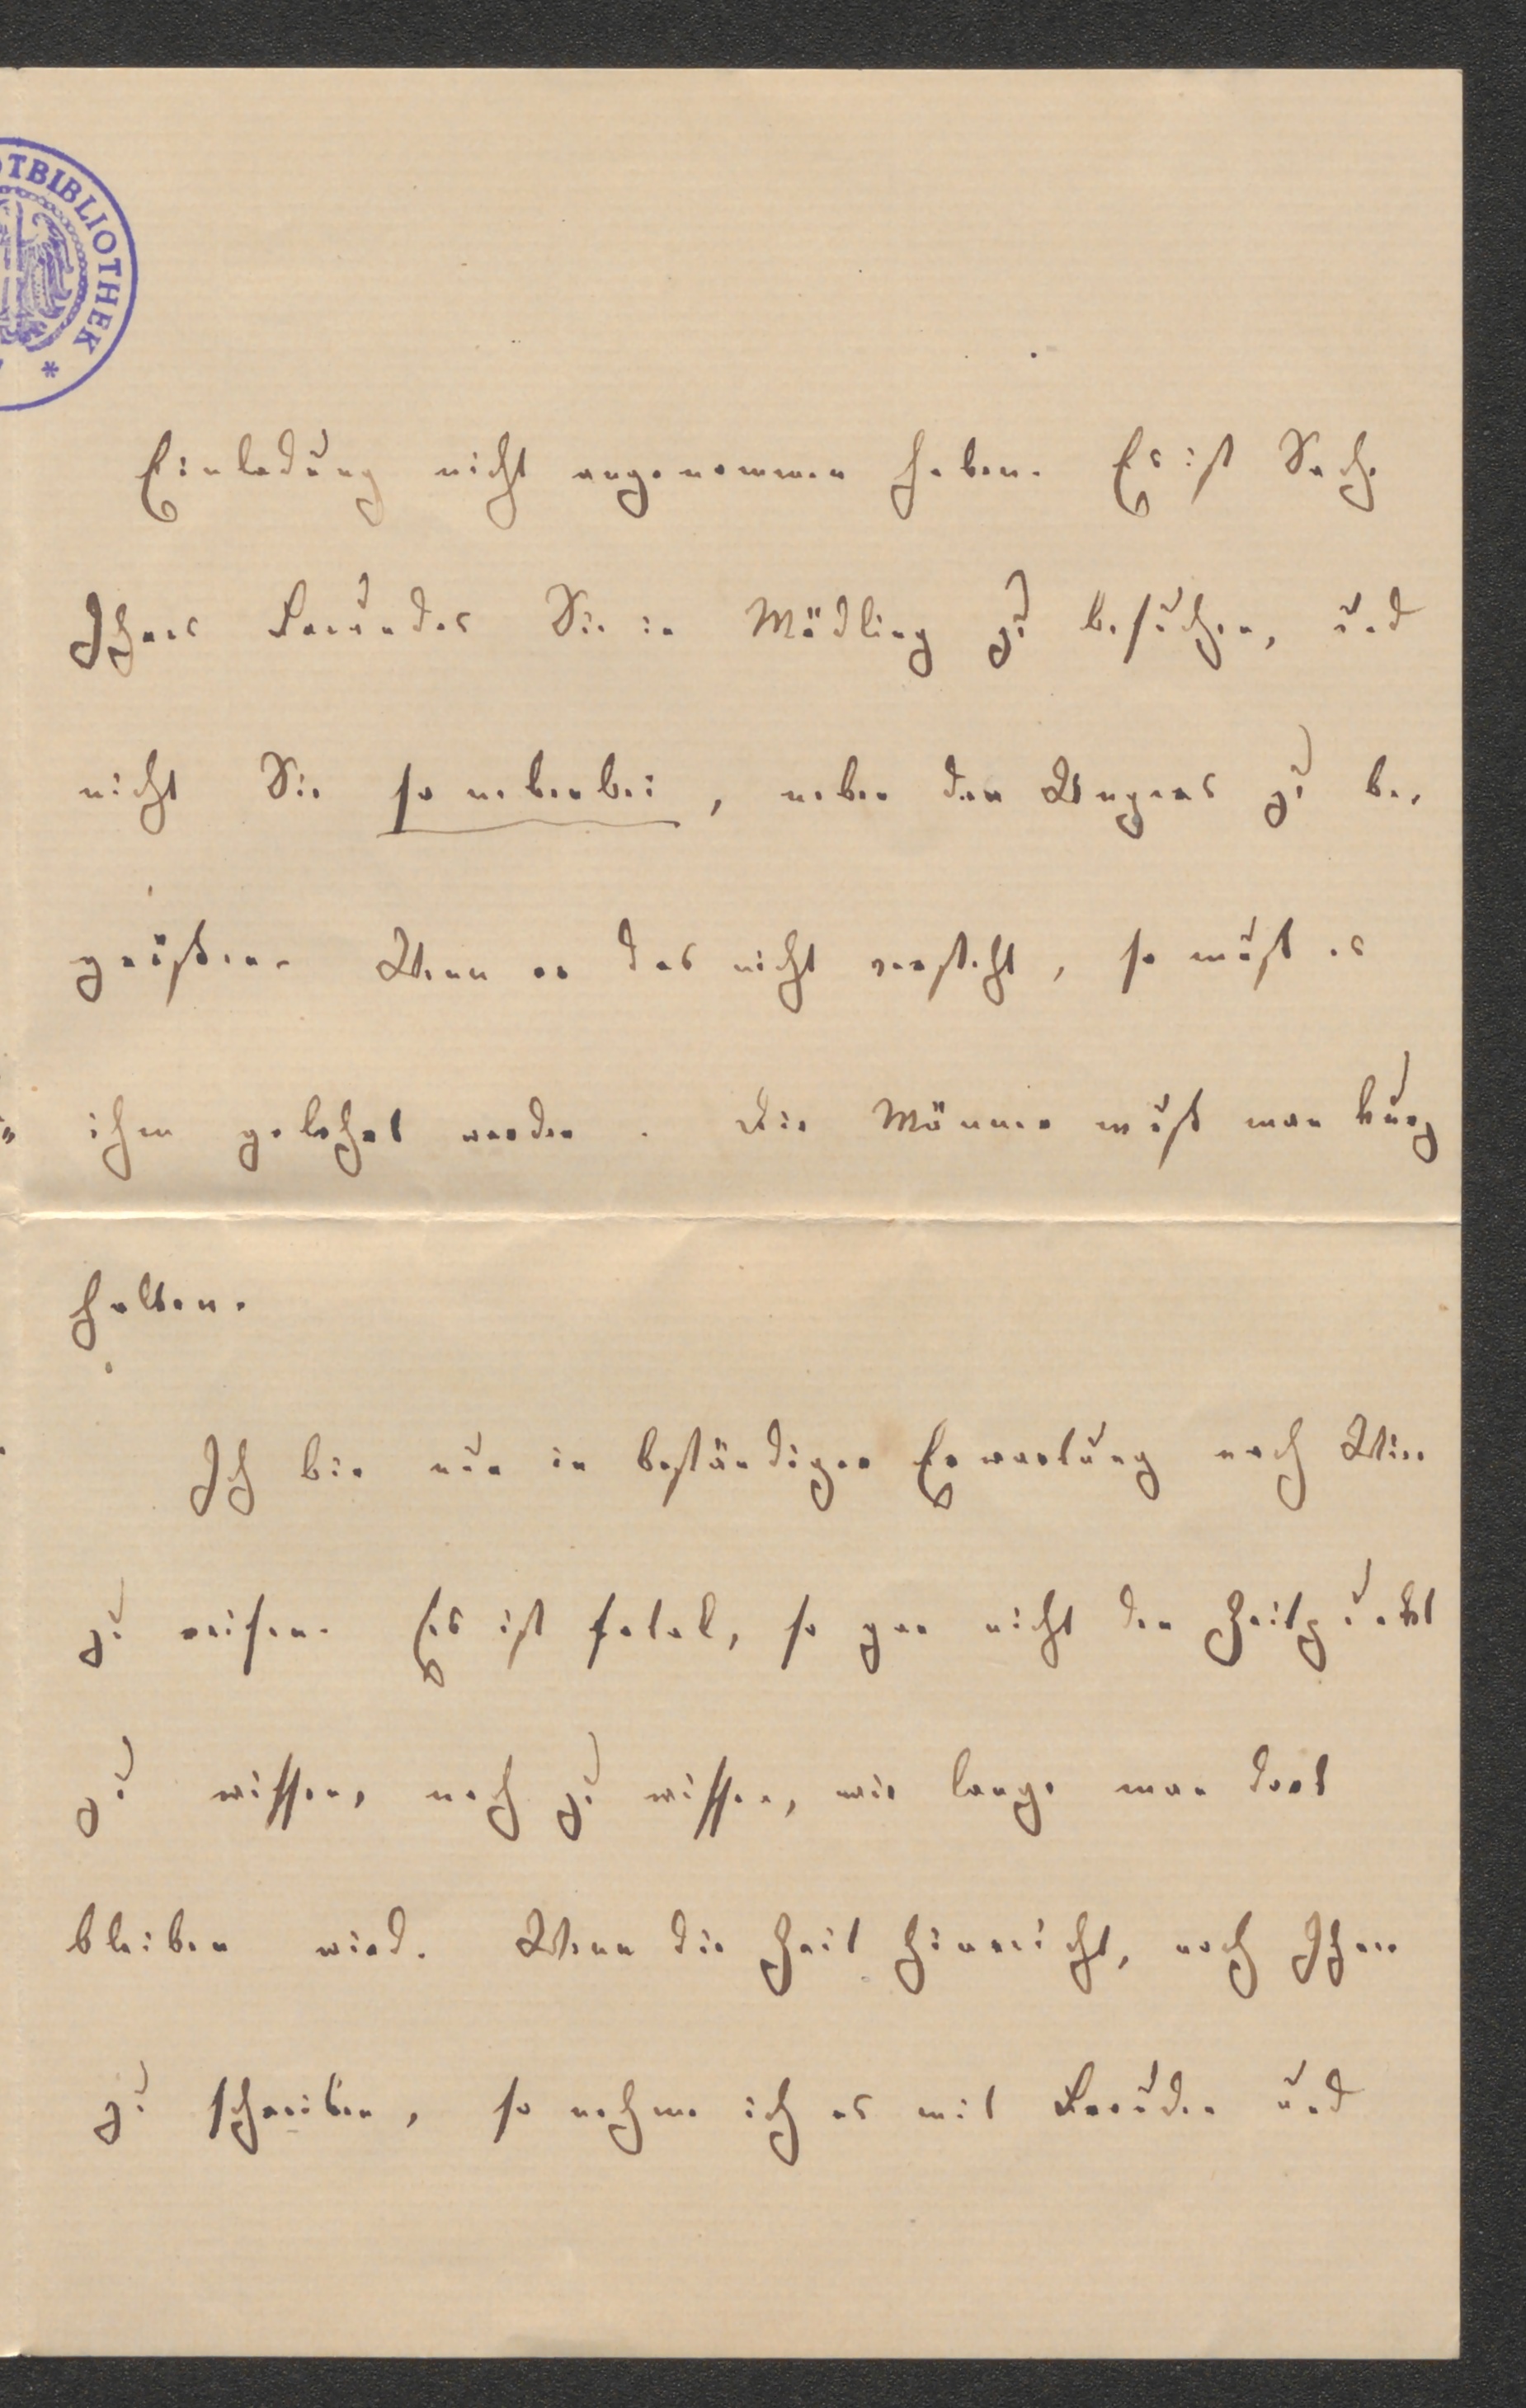 TBIBLIOTHEK *
Einladung nicht angenommen haben. Es ist Sache
Ihres Freundes Sie in Mödling zu besuchen, und
nicht Sie so nebenbei, neben den Wagners zu be-
grüßen. Wenn er das nicht versteht, so muß es
ihm gelehrt werden. Die Männer muß man kurz
halten.
Ich bin nun in beständiger Erwartung nach Wien
zu reisen. Es ist fatal, so gar nicht den Zeitpunkt
zu wissen, noch zu wissen, wie lange man dort
bleiben wird. Wenn die Zeit hinreicht, noch Ihnen
zu schreiben, so nehme ich es mit Freuden und